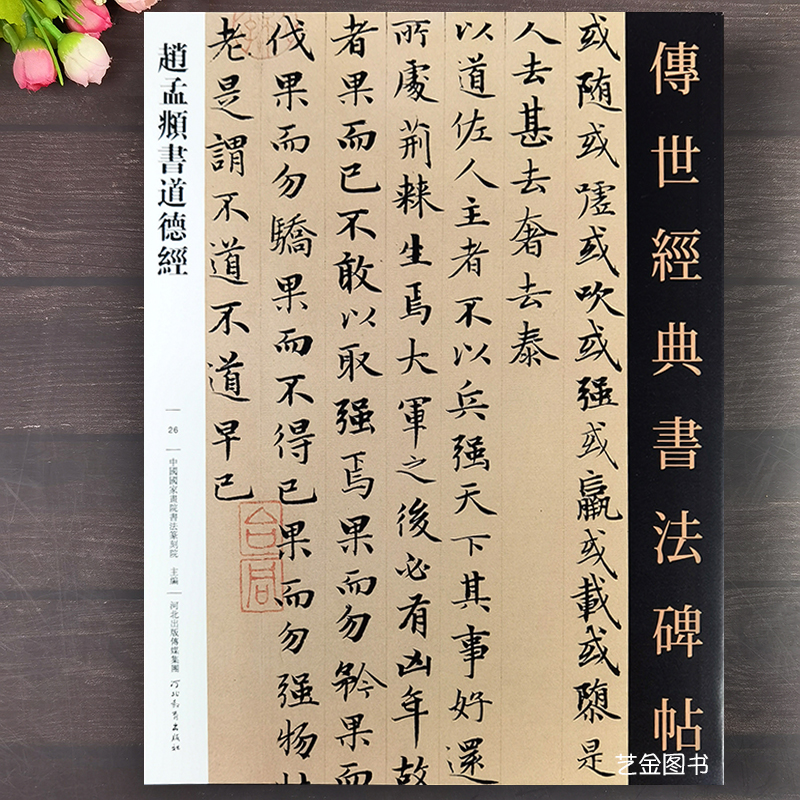 傳世經典書法碑帖
或随或噓或吹或强或羸或載或隳是
人去甚去奢去泰
以道佐人主者不以兵强天下其事好還
所處荆棘生焉大軍之後必有凶年故
者果而已不敢以取强焉果而勿矜果而
伐果而勿驕果而不得已果而勿强物
老是謂不道不道早已
趙孟頫書道德經
26
中國國家畫院書法篆刻院 主编
河北出版傳媒集團
河北教育出版社
艺金图书